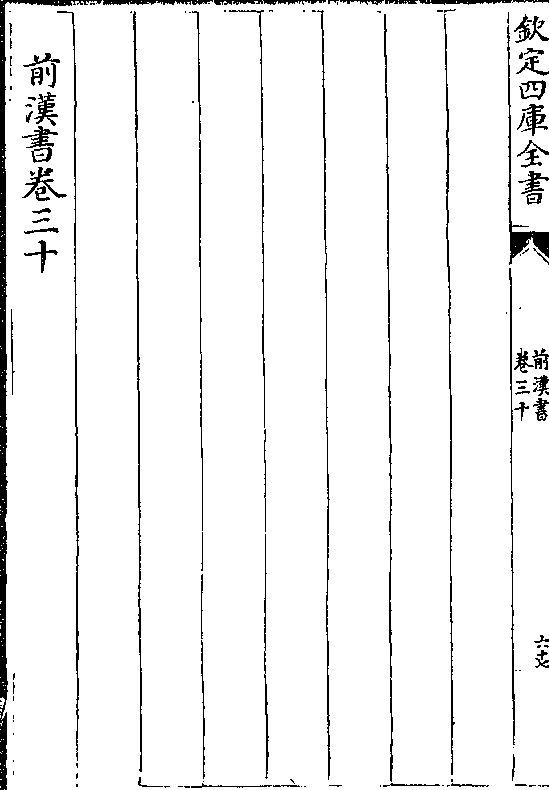 欽定四庫全書
前漢書
卷三十
六十七
前漢書卷三十